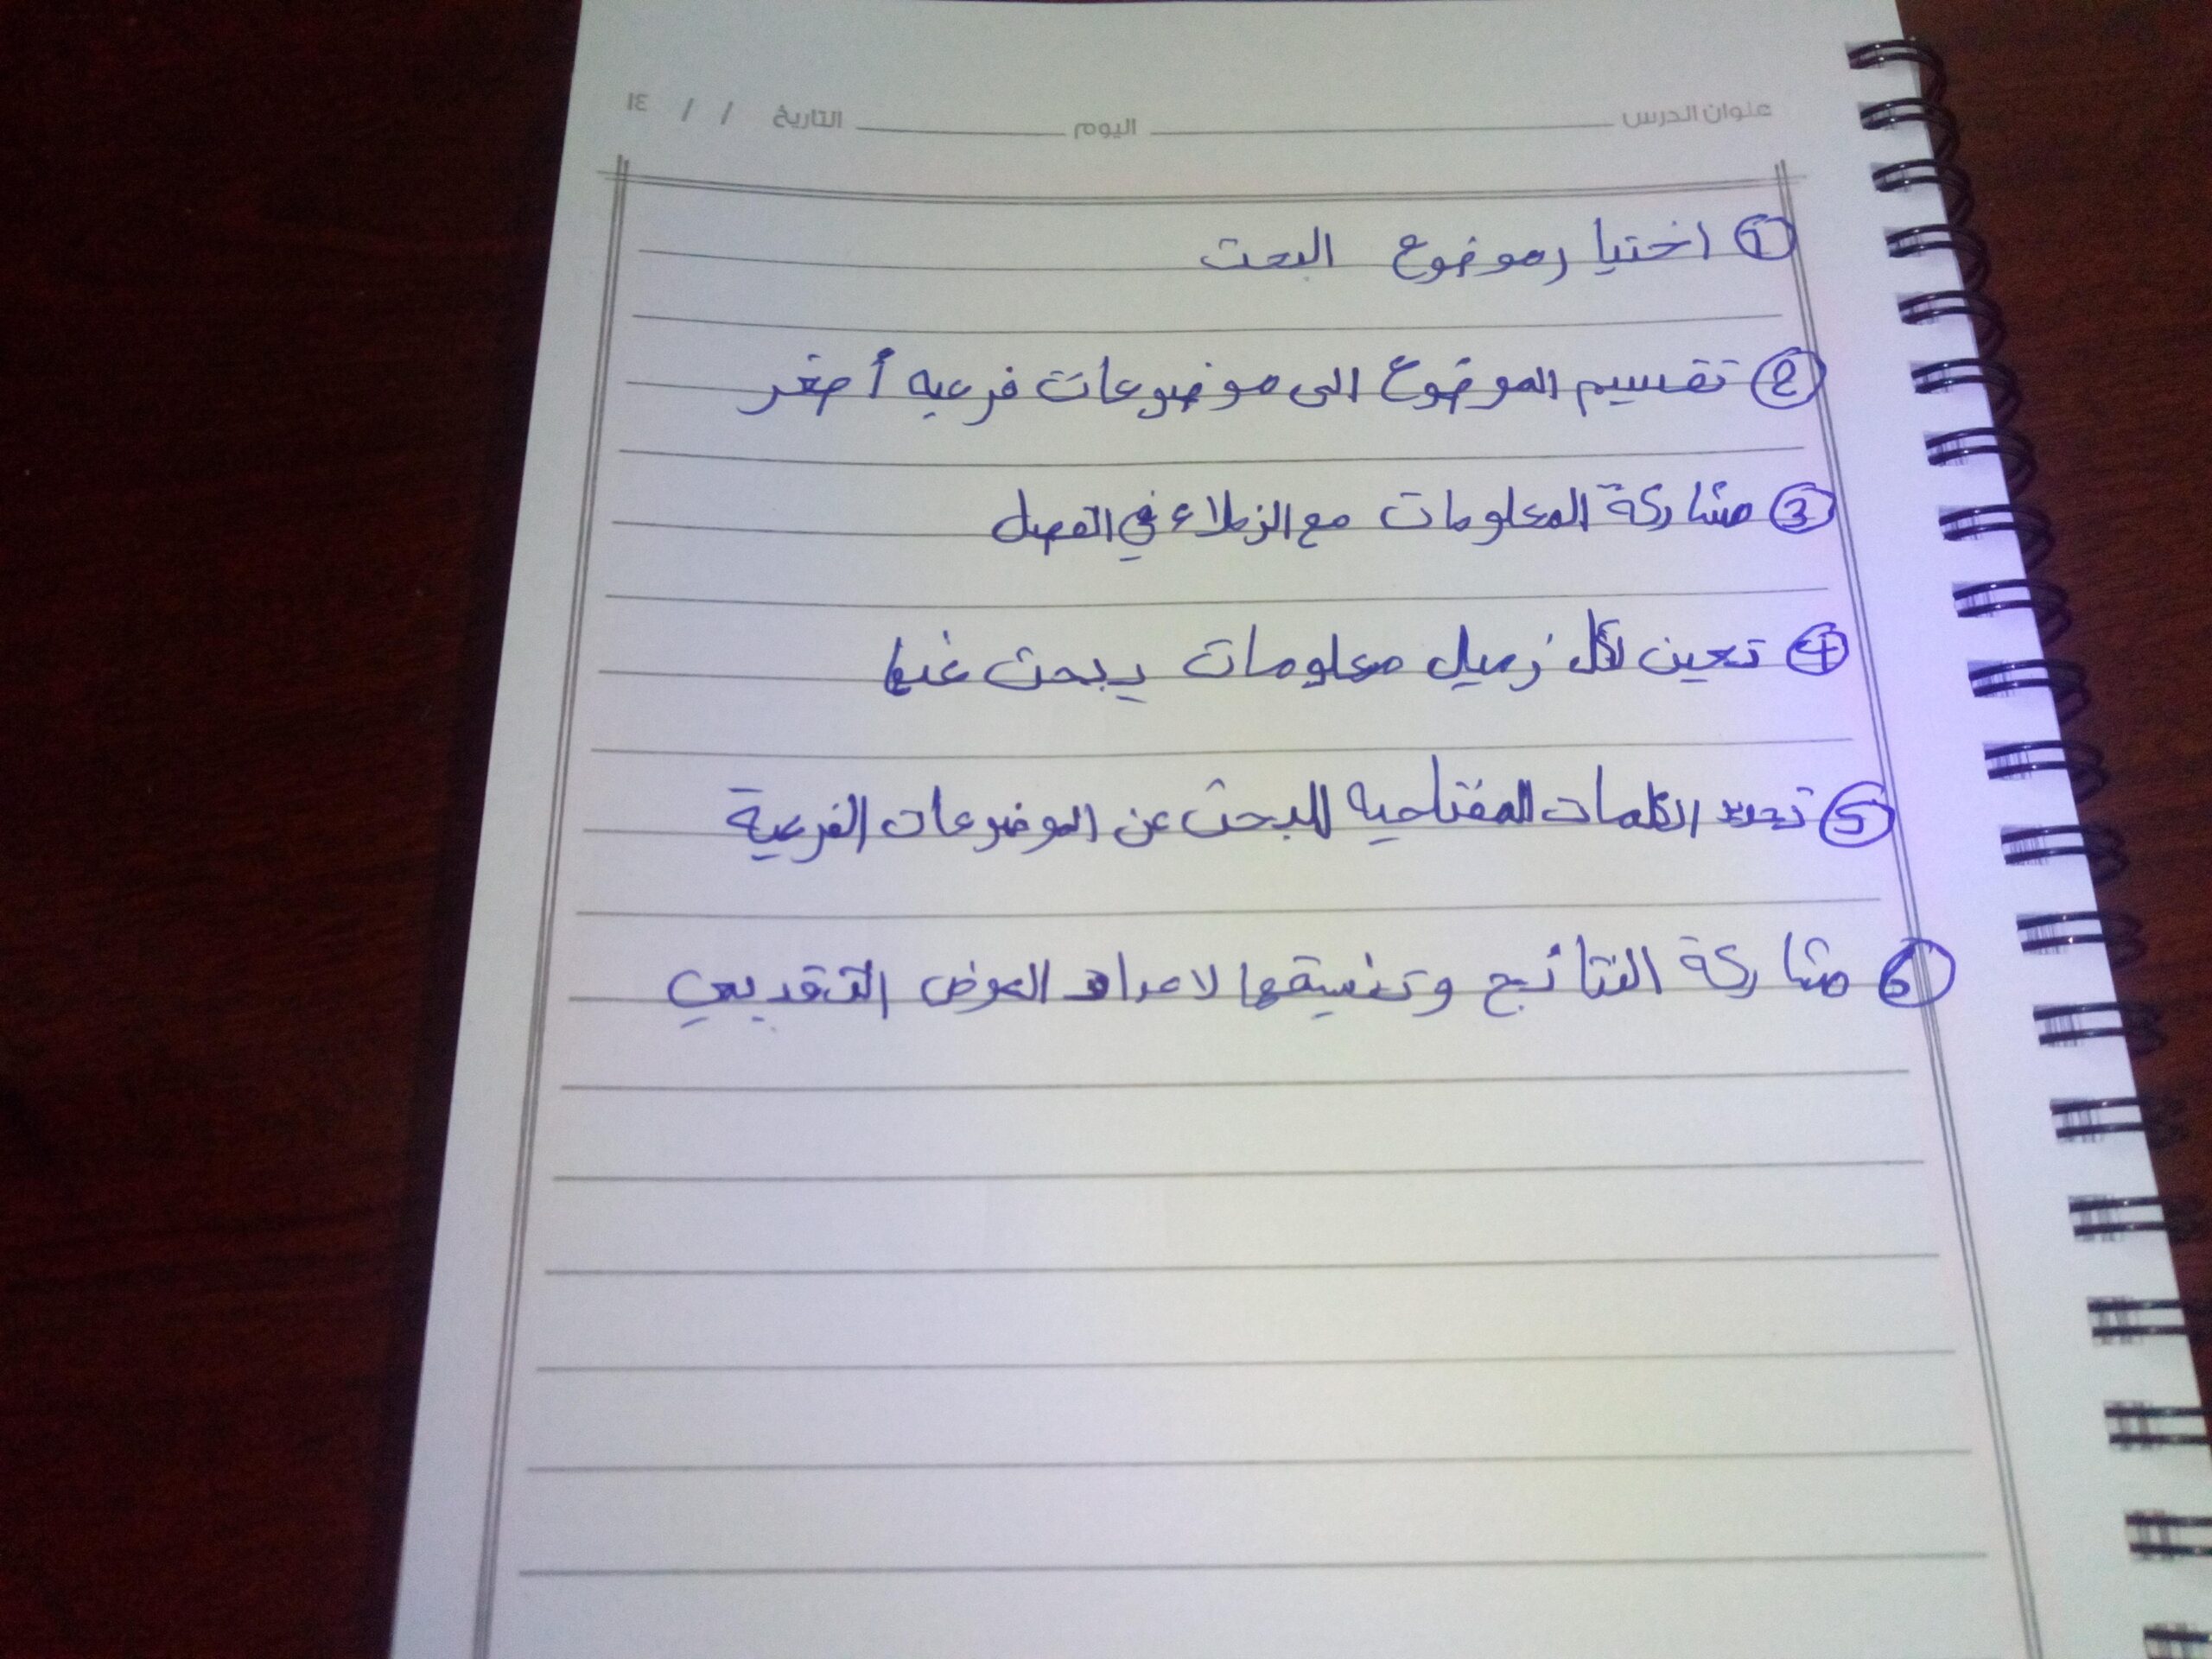 عنوان الدرس اليوم التاريخ / / ١٤
① اختيار موضوع البحت
② تقسيم الموضوع الى موضوعات فرعيه أصغر
③ مشاركة المعلومات مع الزملاء في الفصل
④ تعين لكل زميل معلومات يبحث عنها
⑤ تحديد الكلمات المفتاحيه للبحث عن الموضوعات الفرعية
⑥ مشاركة النتائج وتنسيقها لاعداد العرض التقديمي